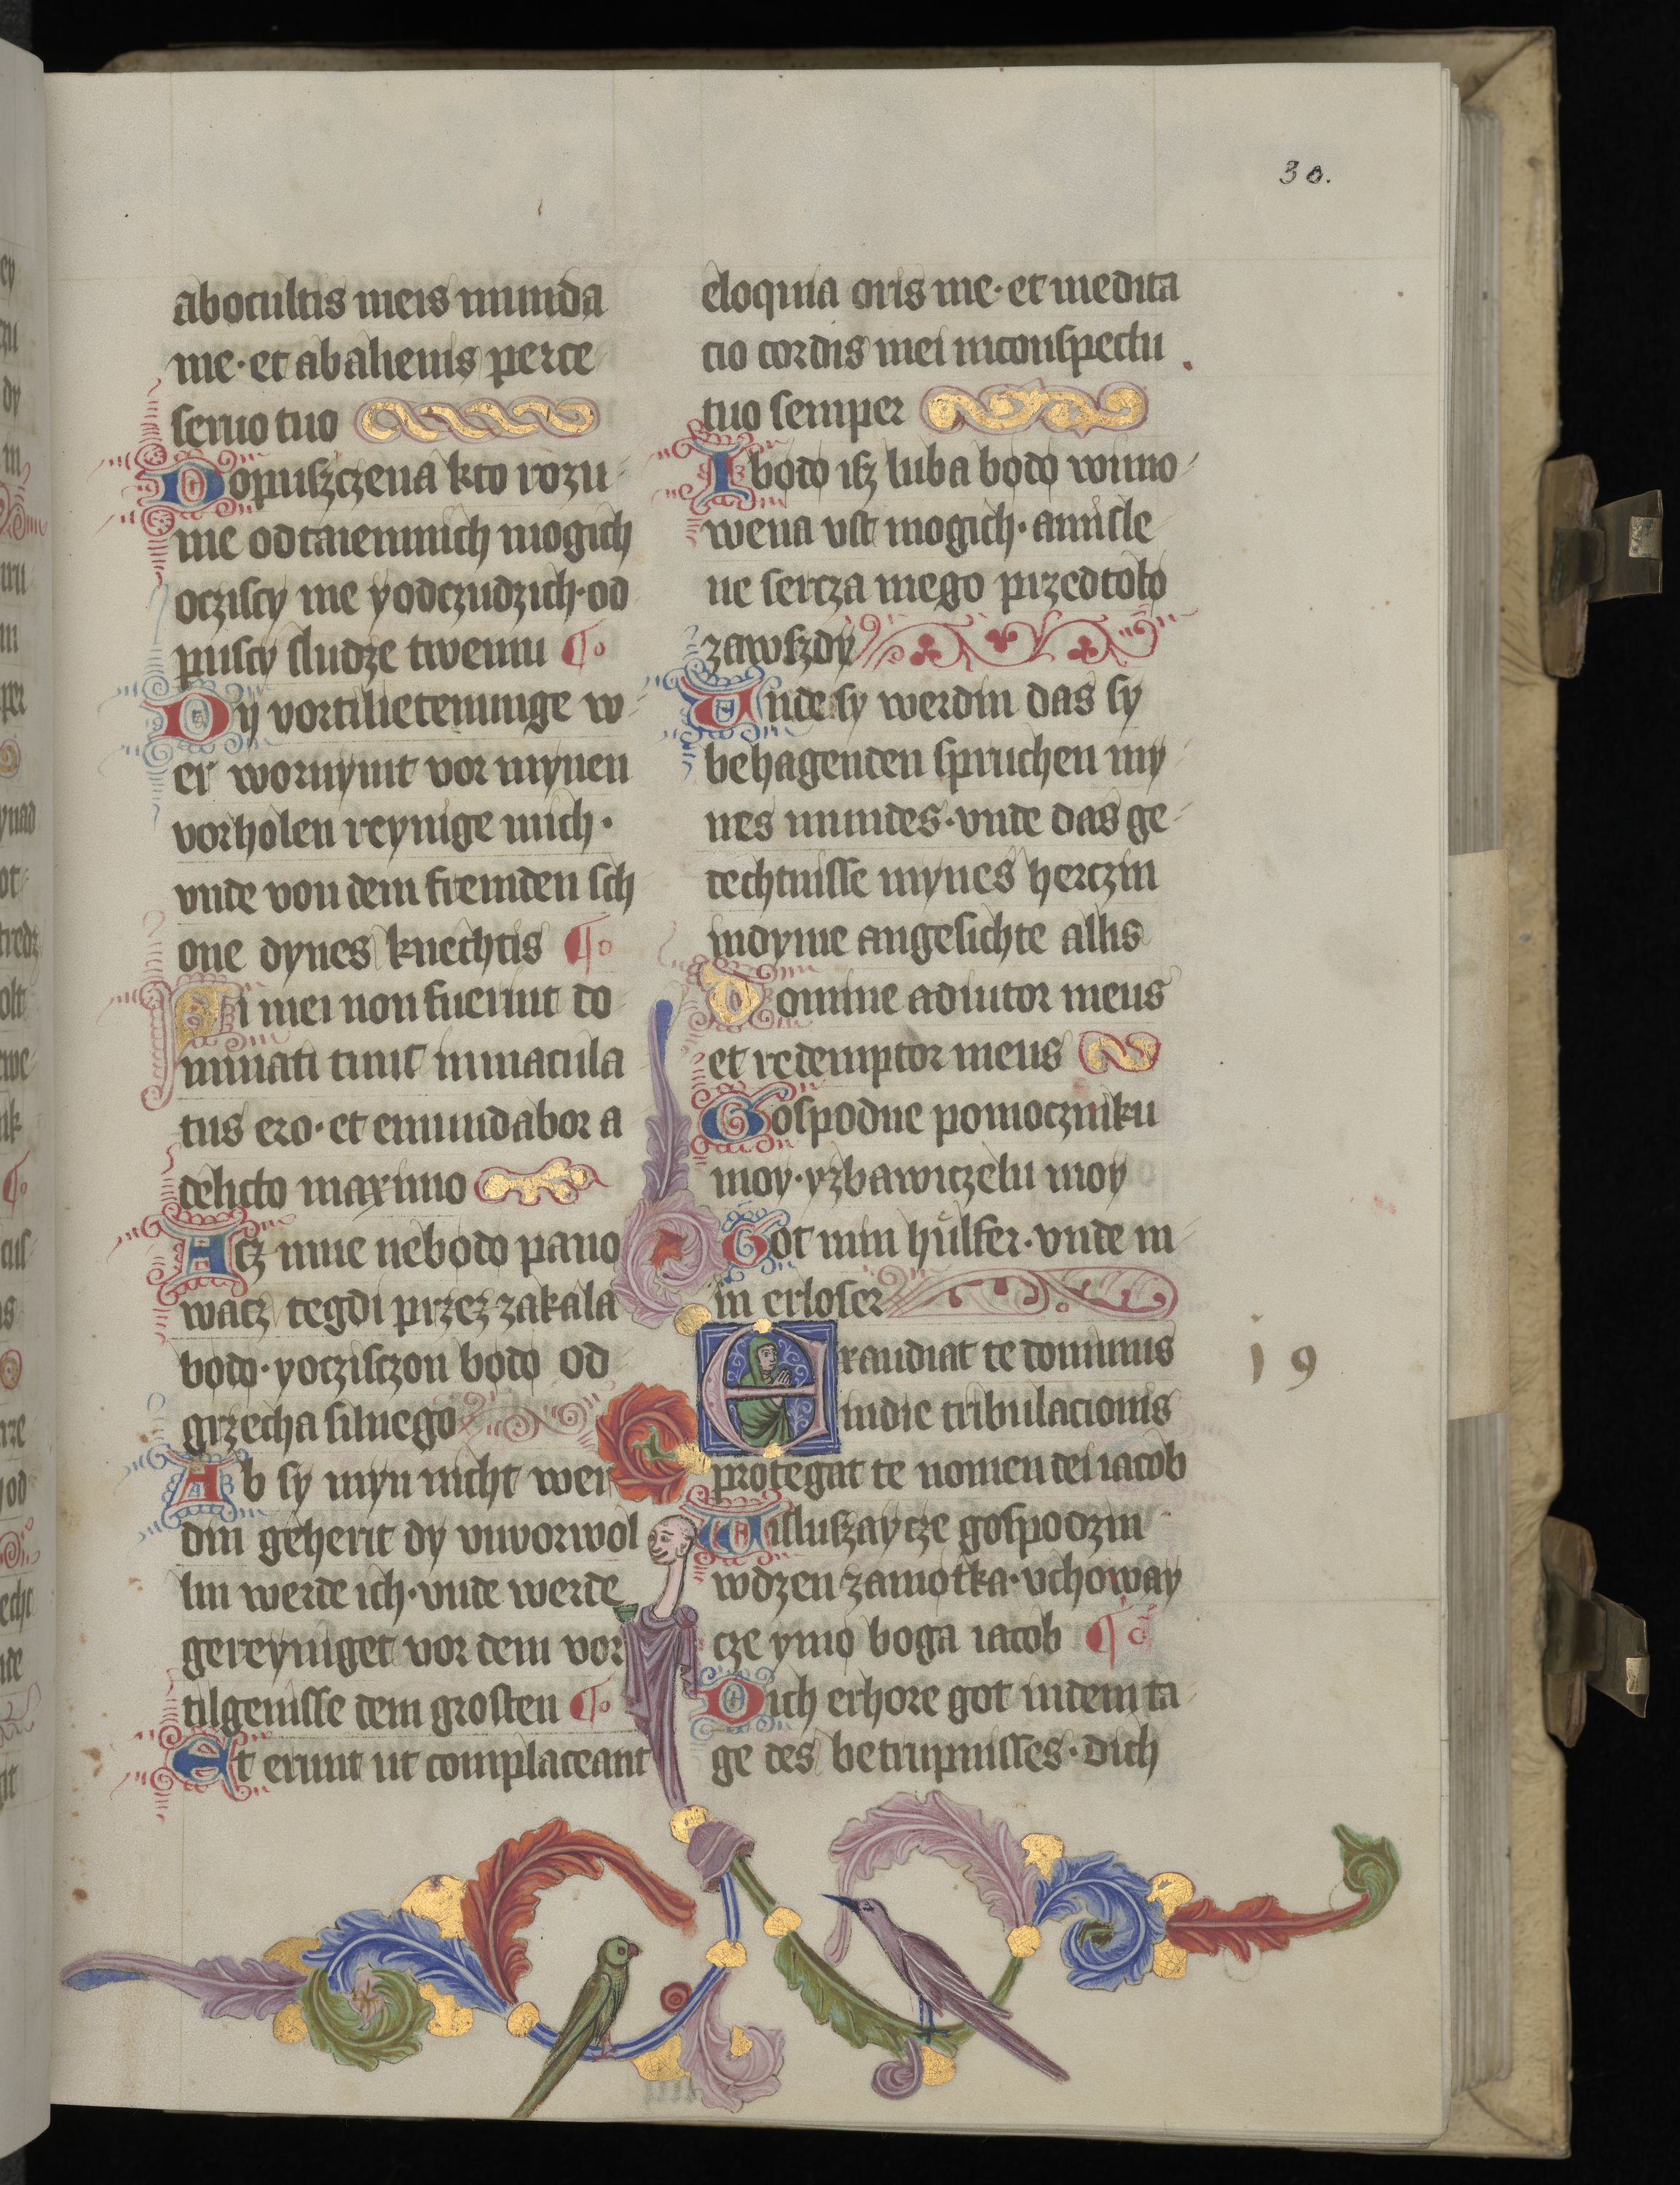 30.
abocultis meis munda
me · et abalienis parce
seruo tuo
Dopuszczena kto rozu
me odtaiemnich mogich
ocziscy me yodczudzich · od
puscy sludze twemu
Dy vortilietenunge w
er vornymt vor mynen
vorholen reynige mich ·
vnde von dem fremden sch
one dynes knechtis
Si mei non fuerint do
minati tunc inmacula
tus ero · et emundabor a
delicto maximo
Acz mne nebodo pano
wacz tegdi przez zakala
bodo · yocziszczon bodo od
grzecha silnego
Ab sy myn nicht wer
din geherit dy vnvorwol
lin werde ich · vnde werde
gereyniget vor dem vor
tilgenisse dem grosten
Et erunt ut complaceant
eloquia oris me · et medita
cio cordis mei inconspectu
tuo semper
I bodo isz luba bodo wimo
wena vst mogich · amisle
ne sercza mego przedtobo
zawszdy
Unde sy werdin das sy
behagenden spruchen my
nes mundes · vnde das ge
dechtnisse mynes herczin
indyme angesichte allis
Domine adiutor meus
et redemptor meus
Gospodne pomoczniku
moy · yzbawiczelu moy
Got min hulfer · vnde m
in erloser
Exaudiat te dominus
indie tribulacionis
protegat te nomen dei iacob
19
Wisluszay cze gospodzin
wdzen zamotka · vchoway
cze ymo boga iacob
Dich erhore got indem ta
ge des betrupnisses · dich